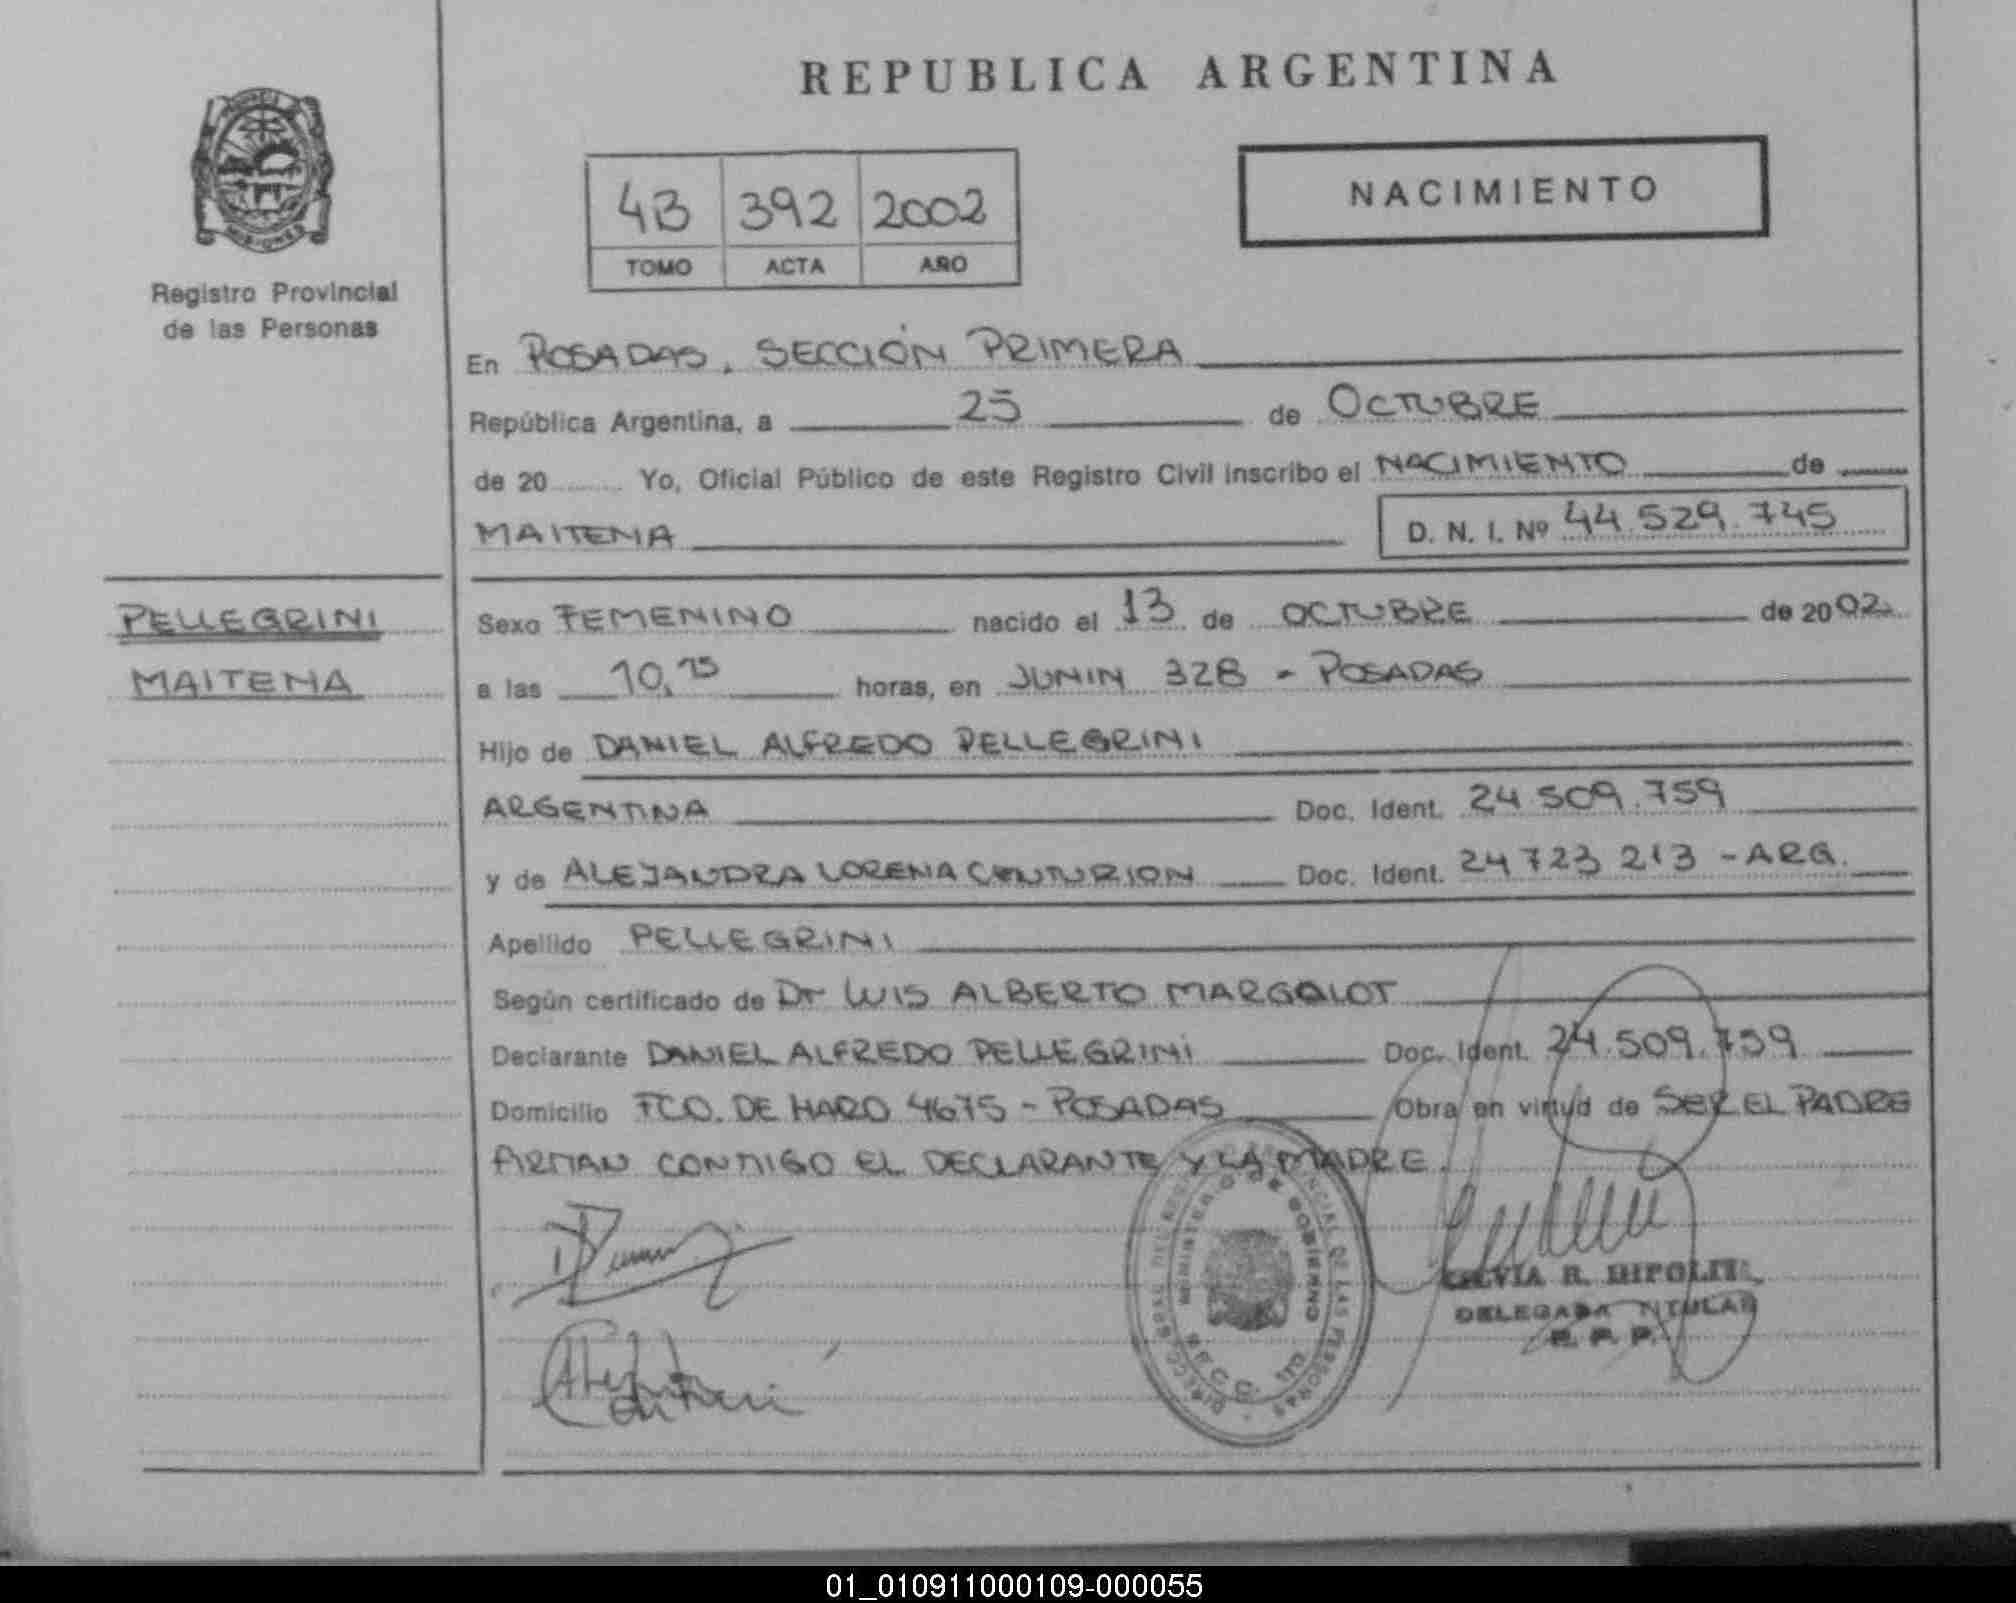 REPUBLICA ARGENTINA
NACIMIENTO
4B 392 2002
TOMO ACTA AÑO
Registro Provincial
de las Personas
MISIONES
En POSADAS, SECCIÓN PRIMERA
República Argentina, a 25 de OCTUBRE
de 20 Yo, Oficial Público de este Registro Civil inscribo el NACIMIENTO de
MAITENA D. N. I. Nº 44.529.745
PELLEGRINI
MAITENA
Sexo FEMENINO nacido el 13 de OCTUBRE de 2002
a las 10,15 horas, en JUNIN 328 - POSADAS
Hijo de DANIEL ALFREDO PELLEGRINI
ARGENTINA Doc. Ident. 24.509.759
y de ALEJANDRA LORENA CENTURION Doc. Ident. 24 723 213 - ARG.
Apellido PELLEGRINI
Según certificado de Dr LUIS ALBERTO MARGALOT
Declarante DANIEL ALFREDO PELLEGRINI Doc. Ident. 24.509.759
Domicilio FCO. DE HARO 4675 - POSADAS Obra en virtud de SER EL PADRE
FIRMAN CONMIGO EL DECLARANTE Y LA MADRE.
MINISTERIO DE GOBIERNO
SILVIA R. HIPOLIT
DELEGADA TITULAR
R. P. P.
01_010911000109-000055